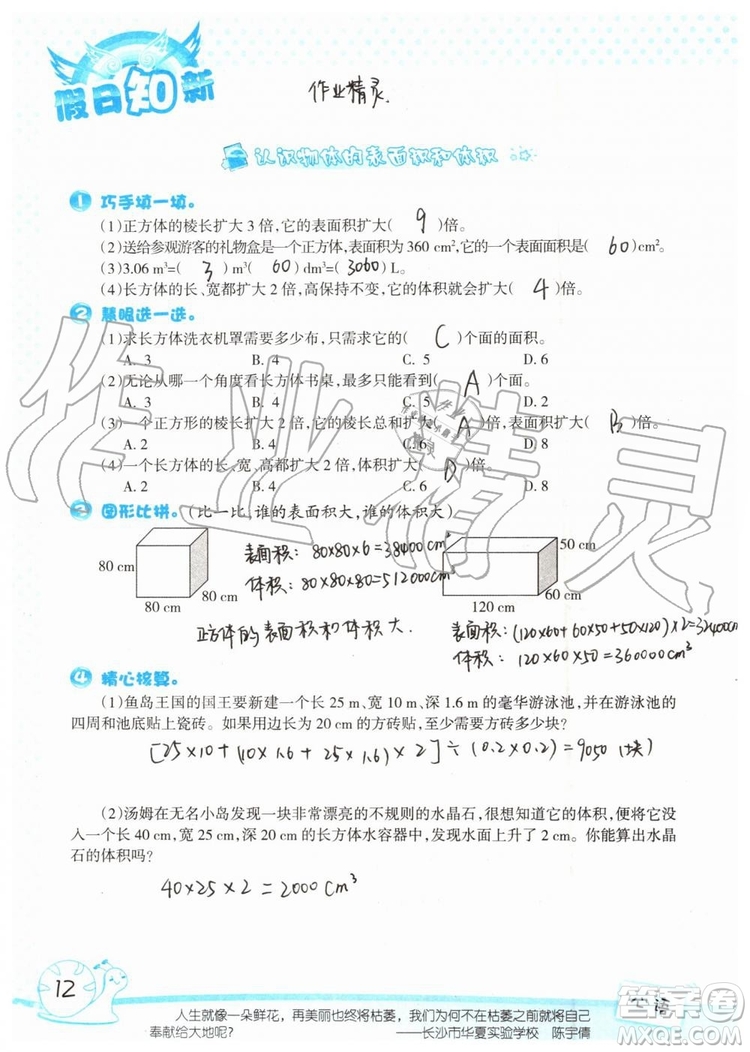 假日知新
作业精灵.
认识物体的表面积和体积
1 巧手填一填。
(1)正方体的棱长扩大 3 倍,它的表面积扩大( 9 )倍。
(2)送给参观游客的礼物盒是一个正方体,表面积为 360 cm²,它的一个表面面积是( 60 )cm²。
(3)3.06 m³=( 3 )m³( 60 )dm³=( 3060 )L。
(4)长方体的长、宽都扩大 2 倍,高保持不变,它的体积就会扩大( 4 )倍。
2 慧眼选一选。
(1)求长方体洗衣机罩需要多少布,只需求它的( C )个面的面积。
A. 3 B. 4 C. 5 D. 6
(2)无论从哪一个角度看长方体书桌,最多能同时看到( A )个面。
A. 3 B. 4 C. 6 D. 2
(3)一个正方形的棱长扩大 2 倍,它的棱长总和扩大( A )倍,表面积扩大( B )倍。
A. 2 B. 4 C. 6 D. 8
(4)一个长方体的长、宽、高都扩大 2 倍,体积扩大( D )倍。
A. 2 B. 4 C. 6 D. 8
3 图形比拼。(比一比,谁的表面积大,谁的体积大)
80 cm
80 cm
80 cm
表面积: 80×80×6=38400cm²
体积: 80×80×80=512000cm³
50 cm
60 cm
120 cm
正方体的表面积和体积大.
表面积:(120×60+60×50+50×120)×2=32400cm
体积: 120×60×50=360000cm³
4 精心核算。
(1)鱼岛王国的国王要新建一个长 25 m、宽 10 m、深 1.6 m 的毫华游泳池,并在游泳池的
四周和池底贴上瓷砖。如果用边长为 20 cm 的方砖贴,至少需要方砖多少块?
[25×10+(10×1.6+25×1.6)×2]÷(0.2×0.2)=9050(块)
(2)汤姆在无名小岛发现一块非常漂亮的不规则的水晶石,很想知道它的体积,便将它放入
一个长 40 cm,宽 25 cm,深 20 cm 的长方体水容器中,发现水面上升了 2 cm。你能算出水晶
石的体积吗?
40×25×2=2000cm³
12
人生就像一朵鲜花,再美丽也终将枯萎,我们为何不在枯萎之前就将自己
奉献给大地呢?
——长沙市华夏实验学校 陈宇倩
心语
作业精灵
答案卷